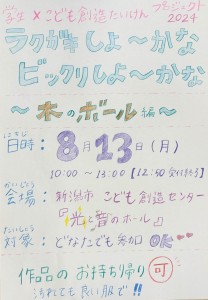 学生×こども創造たいけんプロジェクト2024
ラクガキしよ〜かな
ビックリしよ〜かな
〜木のボール編〜
にちじ
日時：8月13日（月）
10:00〜13:00【12:50受付終了】
かいじょう
会場：新潟市 こども創造センター
『光と音のホール』
たいしょう
対象：どなたでも参加OK
作品のお持ち帰り可
汚れても良い服で!!